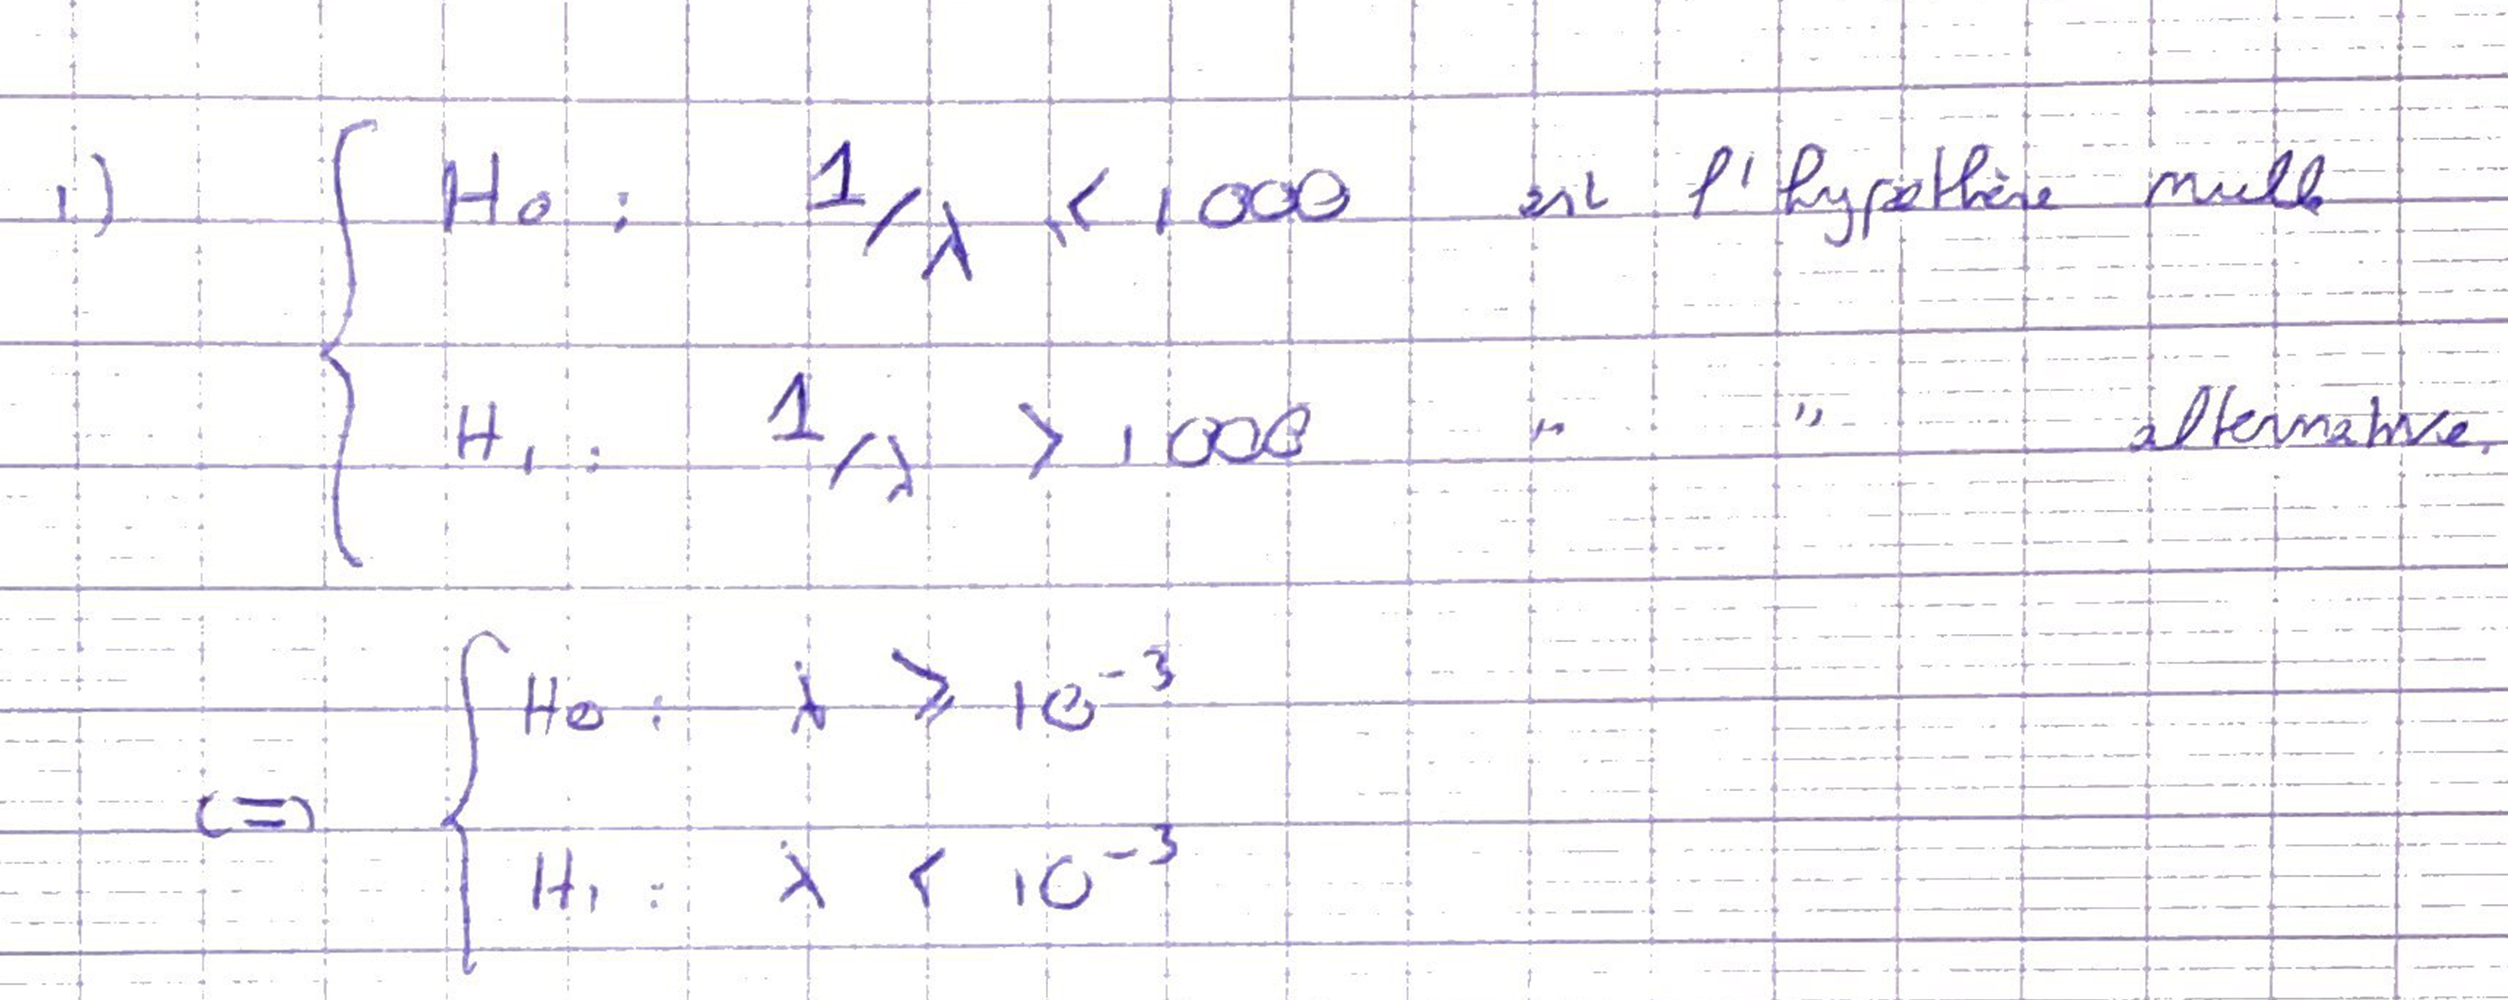 1) { H0 : 1/λ ⩽ 1000 est l'hypothèse nulle
H1 : 1/λ > 1000 " " alternative.
(=) { H0 : λ ⩾ 10^-3
H1 : λ < 10^-3